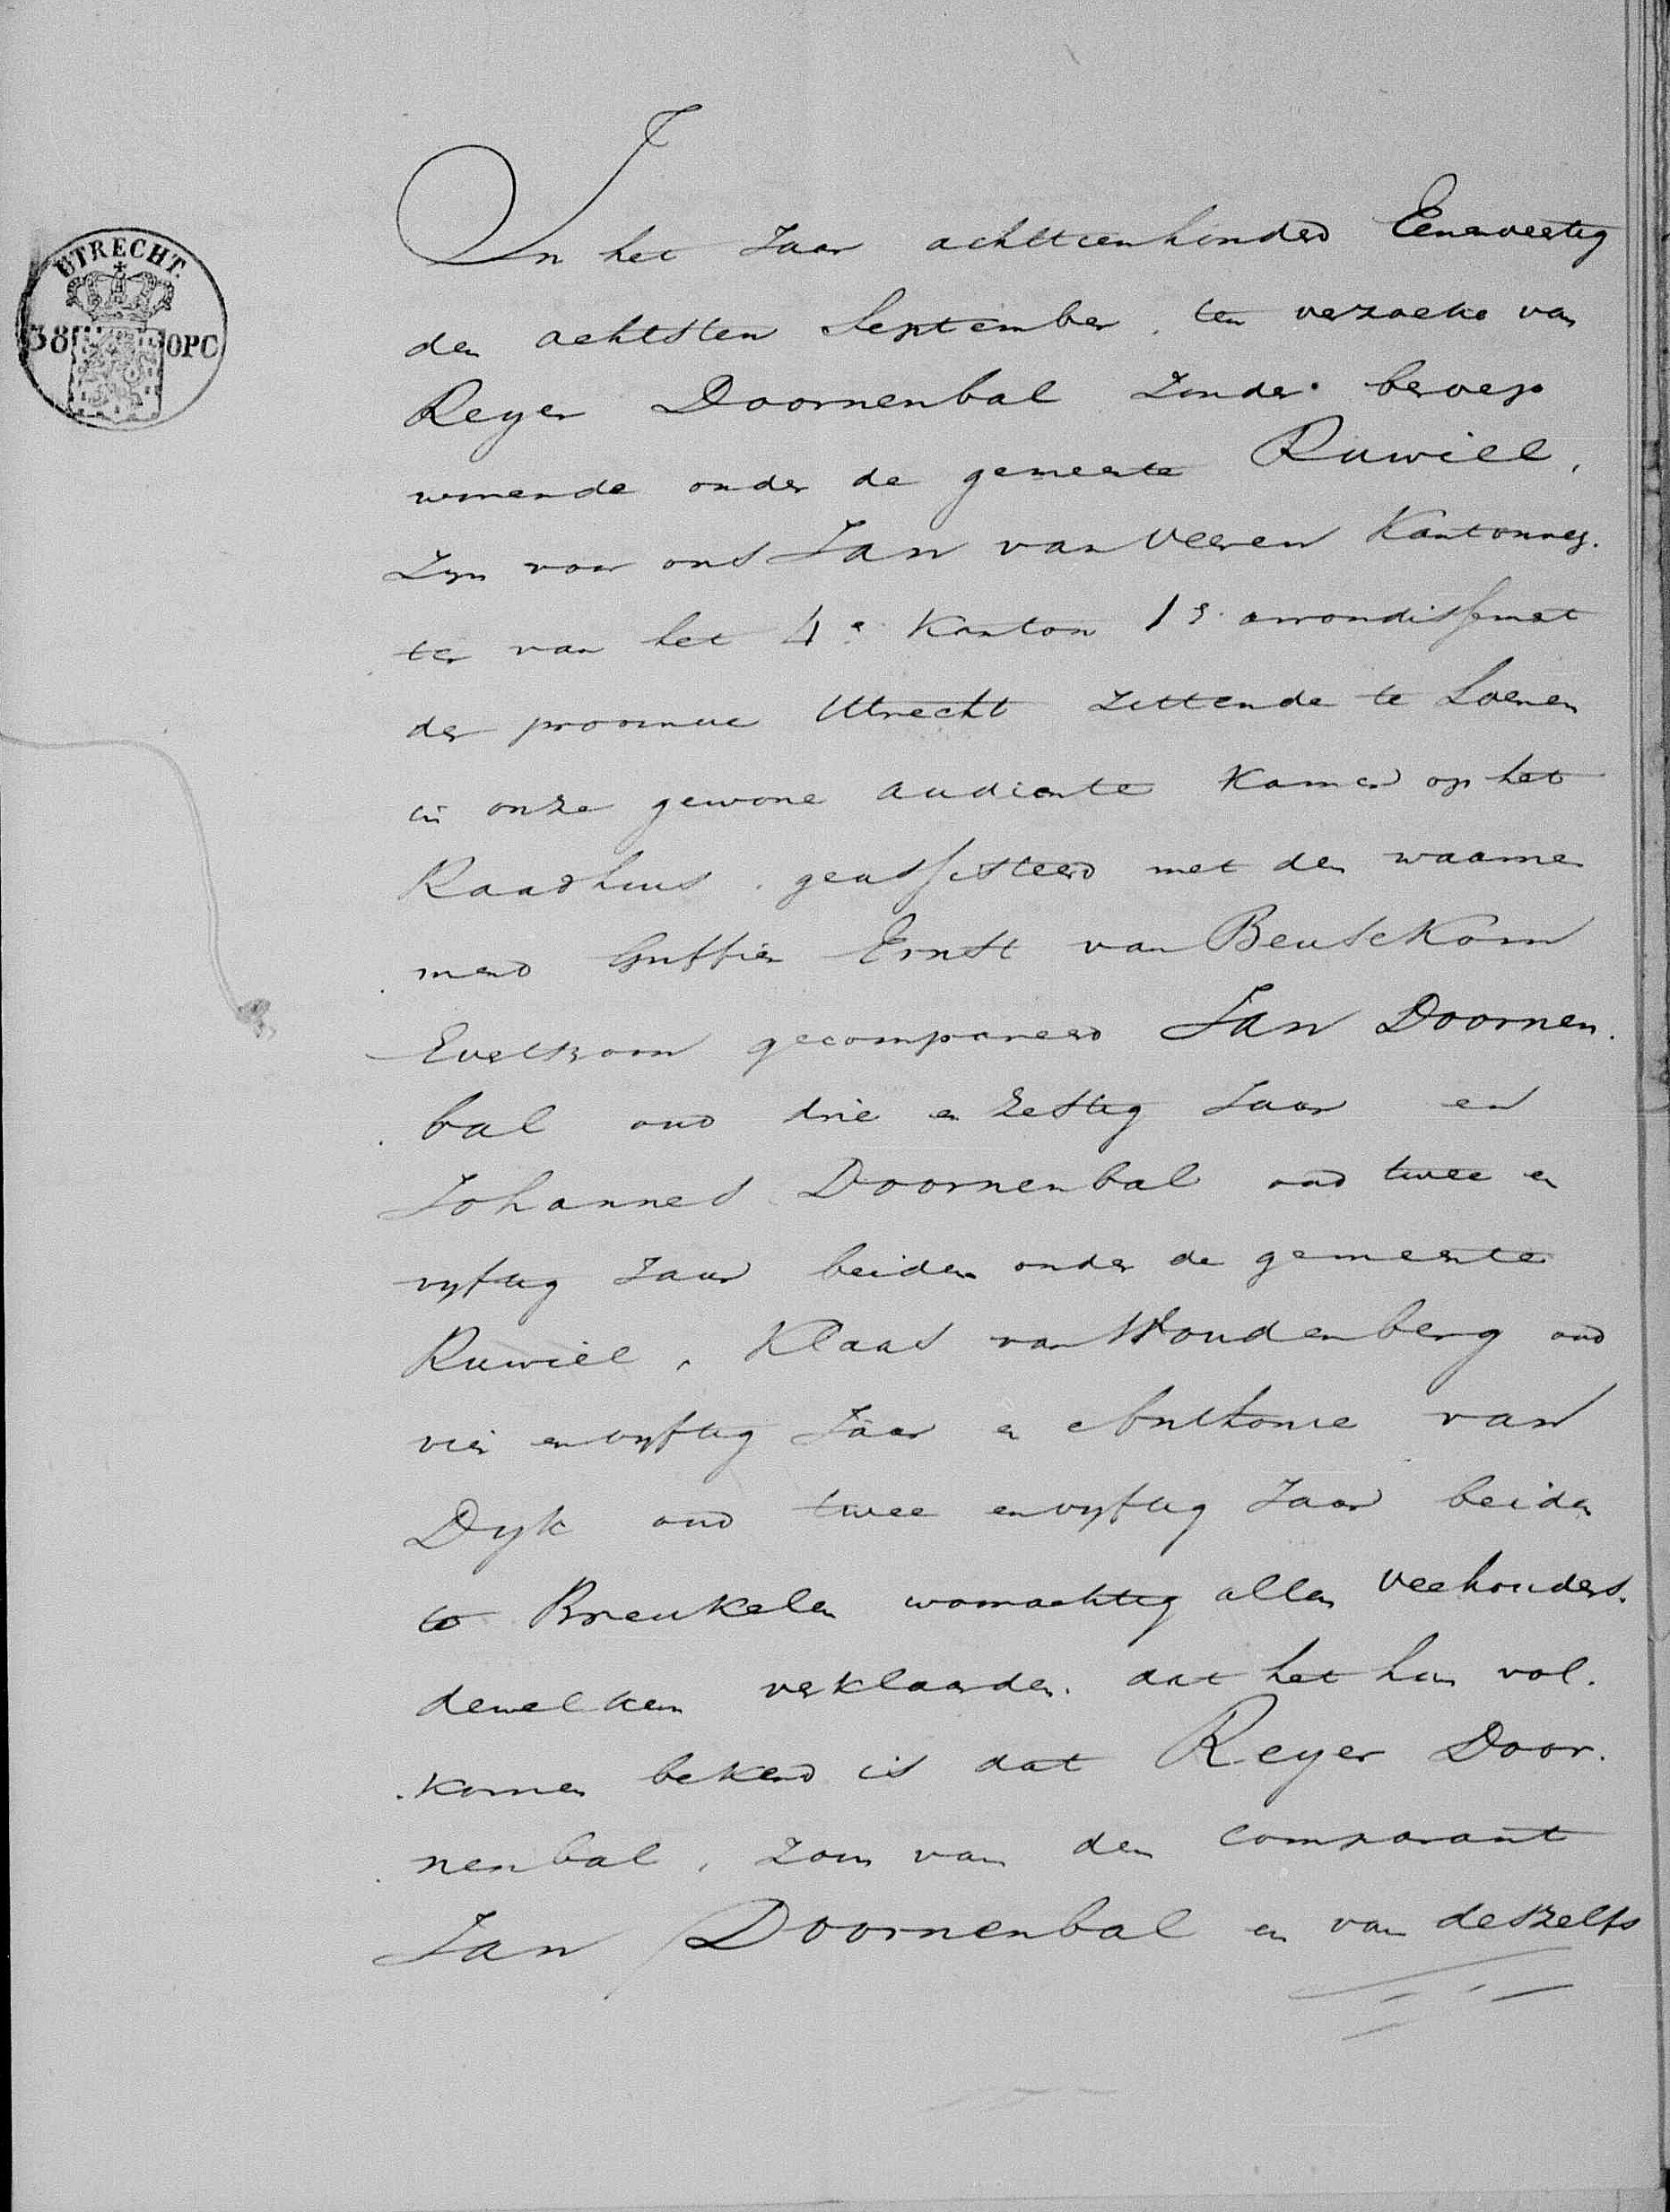 UTRECHT.
38 OPC
In het Jaar achttienhonderd Eenenveertig
den achtsten September. ten verzoeke van
Reyer Doornenbal zonder beroep
wonende onder de gemeente Ruwiel,
Zyn voor ons Jan van Veeren Kantonreg.
ter van het 4e Kanton 1e arrondissement
der provincie Utrecht zittende te Loenen
in onze gewone audientie Kamer op het
Raadhuis. geassisteerd met den waarne
mend Griffier Ernst van Beusekom
gecompareerd Jan Doornen.
bal oud drie en zestig Jaar en
Johannes Doornenbal oud twee en
vyftig Jaar beiden onder de gemeente
Ruwiel, Klaas van Woudenberg oud
vier en vyftig Jaar en Anthonie van
Dyk oud twee en vyftig Jaar beiden
te Breukelen woonachtig allen veehouders.
dewelken verklaarden. dat het hun vol.
komen bekend is dat Reyer Door.
nenbal, zoon van den Comparant
Jan Doornenbal en van deszelfs